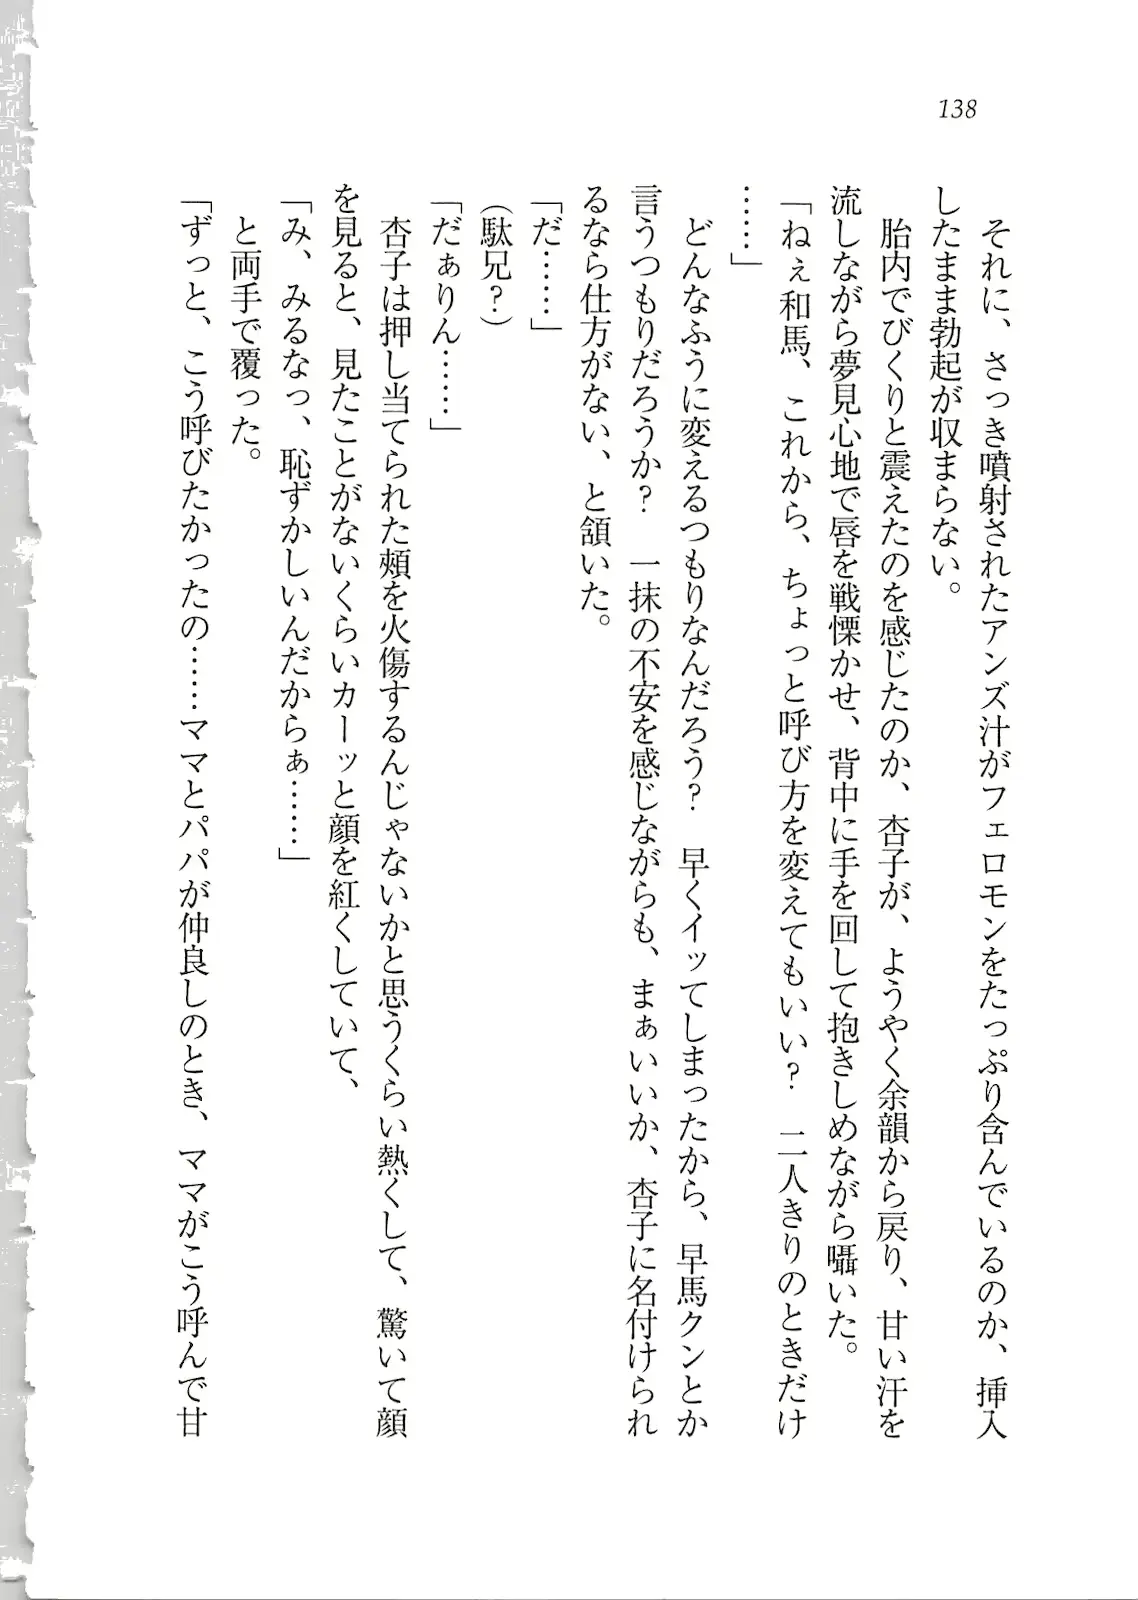 138
それに、さっき噴射されたアンズ汁がフェロモンをたっぷり含んでいるのか、挿入
したまま勃起が収まらない。
胎内でびくりと震えたのを感じたのか、杏子が、ようやく余韻から戻り、甘い汗を
流しながら夢見心地で唇を戦慄かせ、背中に手を回して抱きしめながら囁いた。
「ねぇ和馬、これから、ちょっと呼び方を変えてもいい？　二人きりのときだけ
……」
どんなふうに変えるつもりなんだろう？　早くイッてしまったから、早馬クンとか
言うつもりだろうか？　一抹の不安を感じながらも、まぁいいか、杏子に名付けられ
るなら仕方がない、と頷いた。
「だ……」
（駄兄？）
「だぁりん……」
杏子は押し当てられた頬を火傷するんじゃないかと思うくらい熱くして、驚いて顔
を見ると、見たことがないくらいカーッと顔を紅くしていて、
「み、みるなっ、恥ずかしいんだからぁ……」
と両手で覆った。
「ずっと、こう呼びたかったの……ママとパパが仲良しのとき、ママがこう呼んで甘